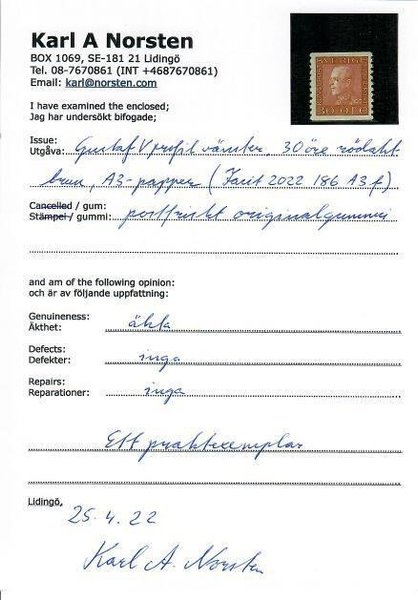 Karl A Norsten
BOX 1069, SE-181 21 Lidingö
Tel. 08-7670861 (INT +4687670861)
Email: karl@norsten.com
SVERIGE
30 ÖRE
I have examined the enclosed;
Jag har undersökt bifogade;
Issue:
Utgåva: Gustaf V profil vänster, 30 öre rödakt
brun, A3-papper (Facit 2022 186 A3f)
Cancelled / gum:
Stämpel / gummi: postfriskt originalgummi
and am of the following opinion:
och är av följande uppfattning:
Genuineness:
Äkthet: äkta
Defects:
Defekter: inga
Repairs:
Reparationer: inga
Ett praktexemplar
Lidingö, 25.4.22
Karl A. Norsten